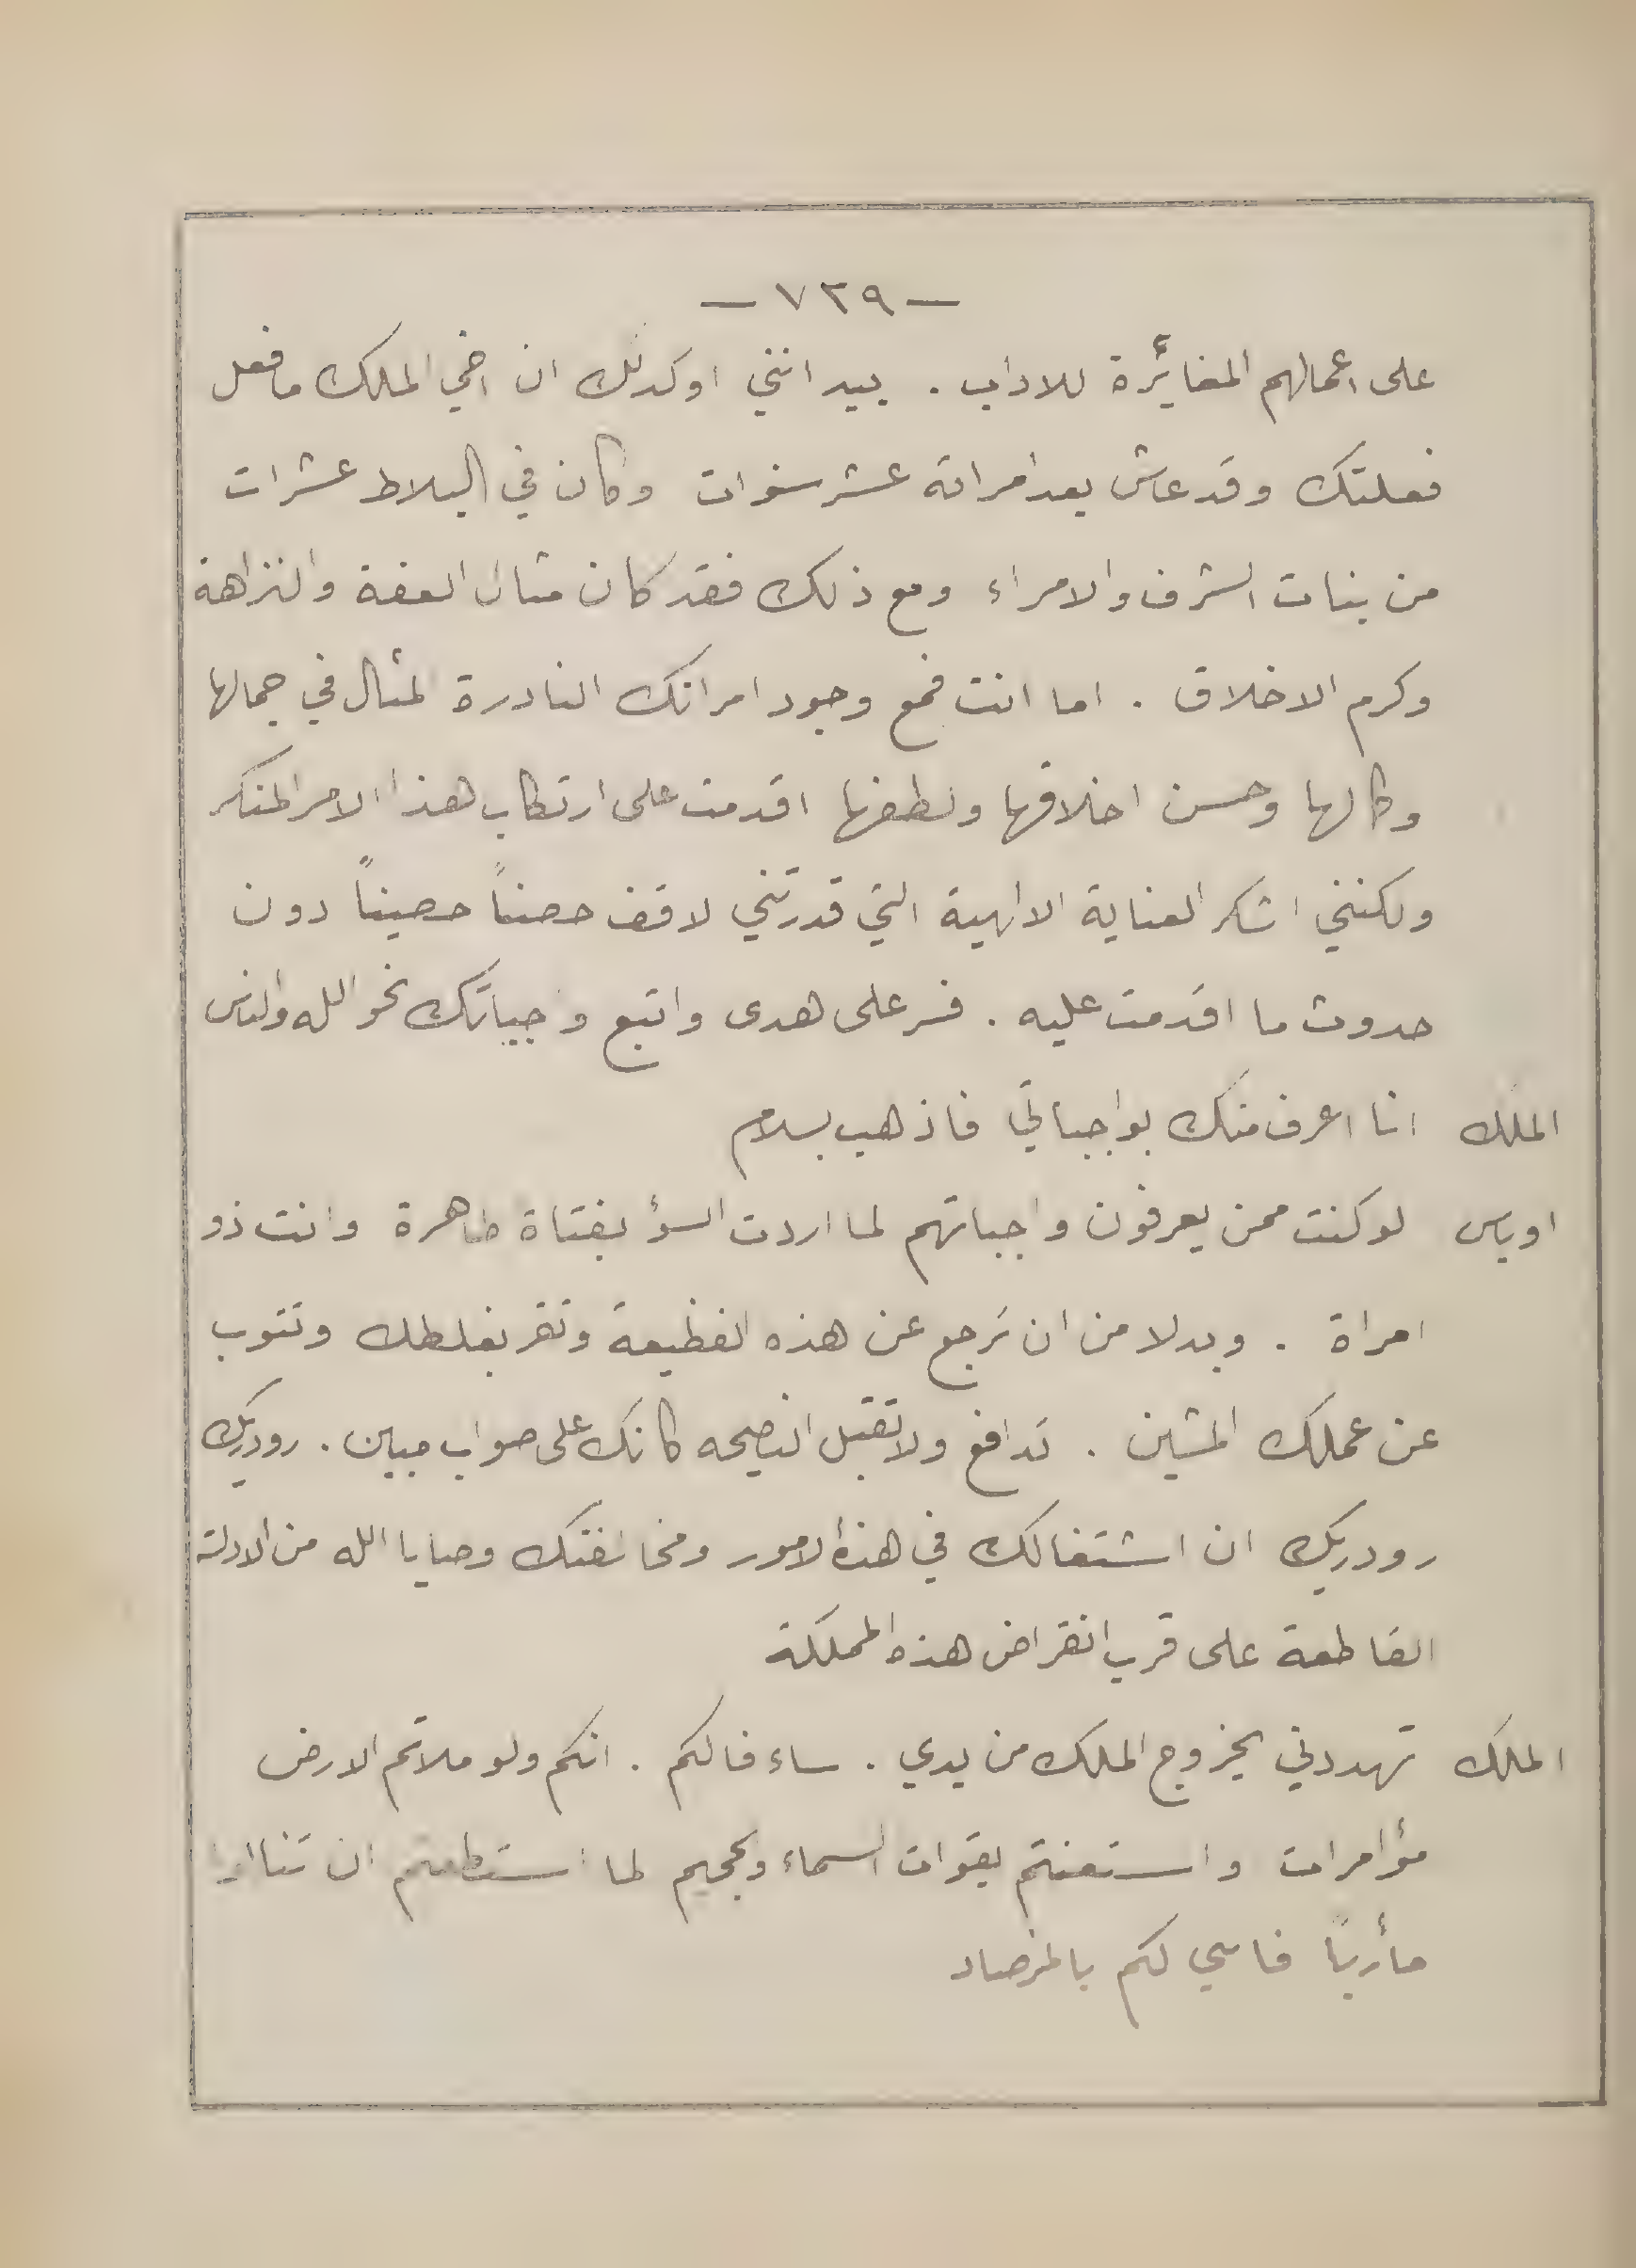 — ٧٣٩ —
على اعمالهم المغائرة للاداب . بيد انني اوكد لك ان اخي الملك ما فعل
فعلتك وقد عاش بعد امراته عشر سنوات وكان في البلاط عشرات
من بنات الشرف والامراء ومع ذلك فقد كان مثال العفة والنزاهة
وكرم الاخلاق . اما انت فمع وجود امراتك النادرة المثال في جمالها
وكمالها وحسن اخلاقها ولطفها اقدمت على ارتكاب هذا الامر المنكر
ولكنني اشكر العناية الالهية التي قدرتني لاقف حصناً حصيناً دون
حدوث ما اقدمت عليه . فسر على هدى واتبع واجباتك نحو الله والناس
الملك انا اعرف منك بواجباتي فاذهب بسلام
اوباس لو كنت ممن يعرفون واجباتهم لما اردت السؤ بفتاة طاهرة وانت ذو
امراة . وبدلا من ان ترجع عن هذه الفظيعة وتقر بغلطك وتتوب
عن عملك المشين . تدافع ولا تقبل النصيحه كانك على صواب مبين . رودريك
رودريك ان اشتغالك في هذه الامور ومخالفتك وصايا الله من الادلة
القاطعة على قرب انقراض هذه المملكة
الملك تهددني بخروج الملك من يدي . ساء فالكم . انكم ولو ملاتم الارض
مؤامرات واستعنتم بقوات السماء والجحيم لما استطعتم ان تنالوا
مأرباً فانني لكم بالمرصاد